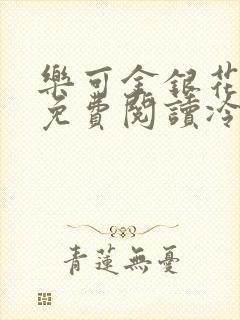 樂可金銀花
免費閱讀冷
青蓮無憂